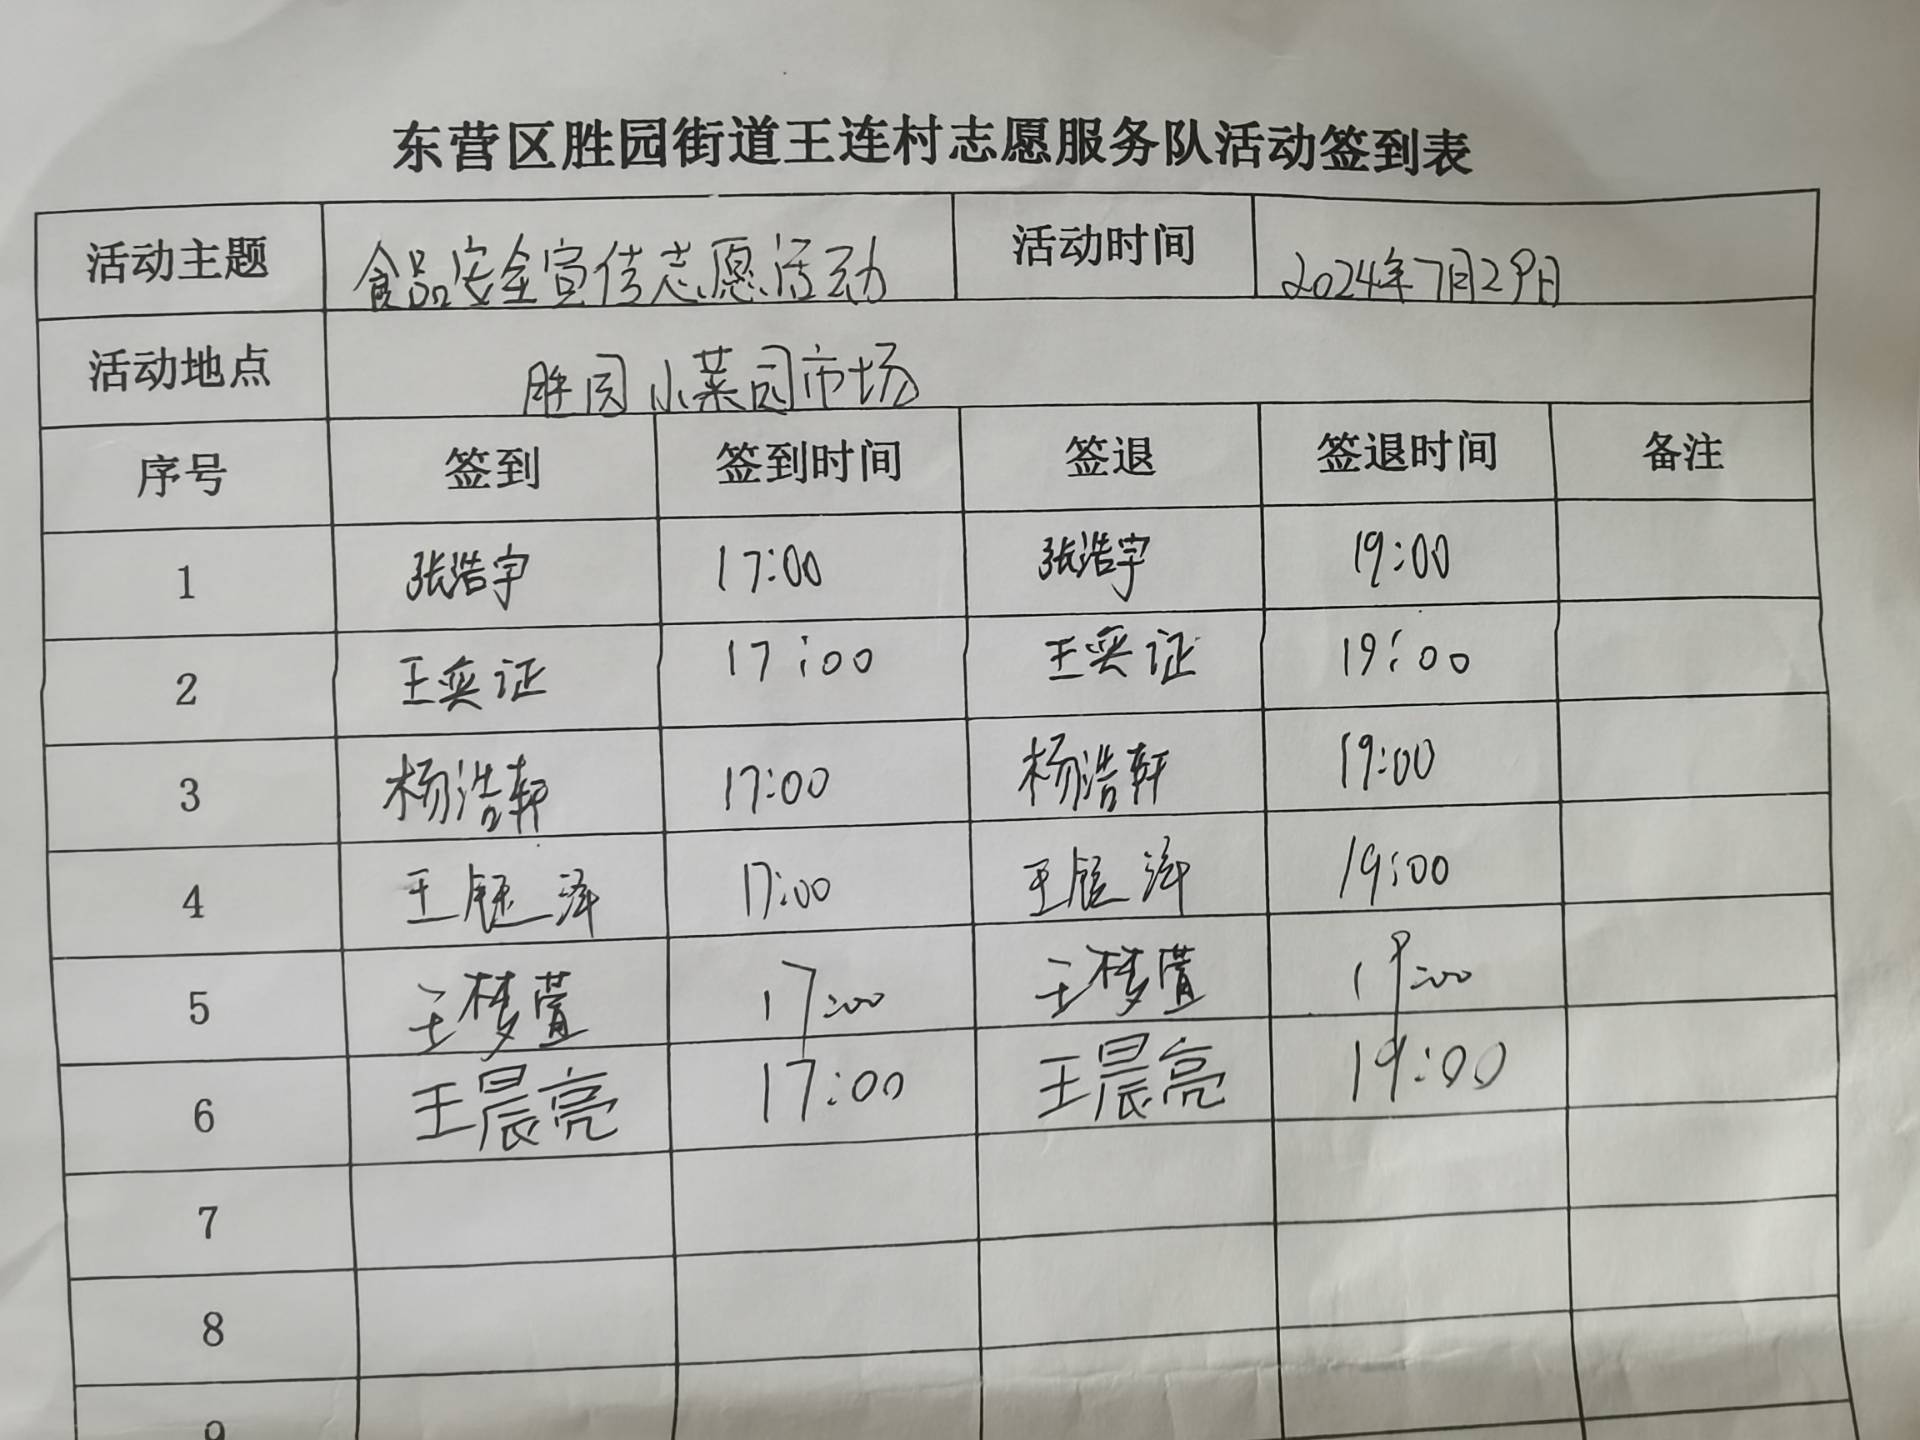 东营区胜园街道王连村志愿服务队活动签到表
活动主题 食品安全宣传志愿活动 活动时间 2024年7月29日
活动地点 胜园小菜园市场
序号 签到 签到时间 签退 签退时间 备注
1 张浩宇 17:00 张浩宇 19:00
2 王奕证 17:00 王奕证 19:00
3 杨浩轩 17:00 杨浩轩 19:00
4 王 泽 17:00 王 泽 19:00
5 王梦萱 17:00 王梦萱 19:00
6 王晨亮 17:00 王晨亮 19:00
7
8
9